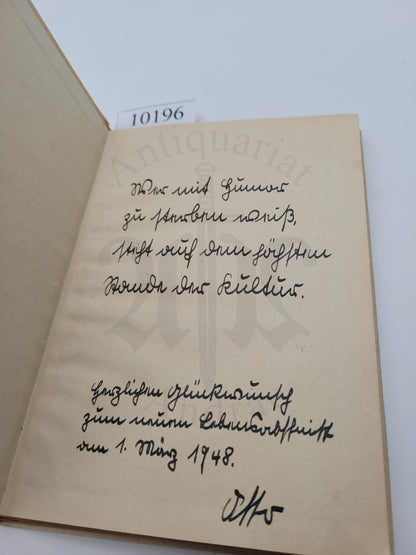 10196
Antiquariat
Wer mit Humor
zu sterben weiß,
steht auf dem höchsten
Stande der Kultur.
Herzlichen Glückwunsch
zum neuen Lebensabschnitt
am 1. März 1948.
Otto